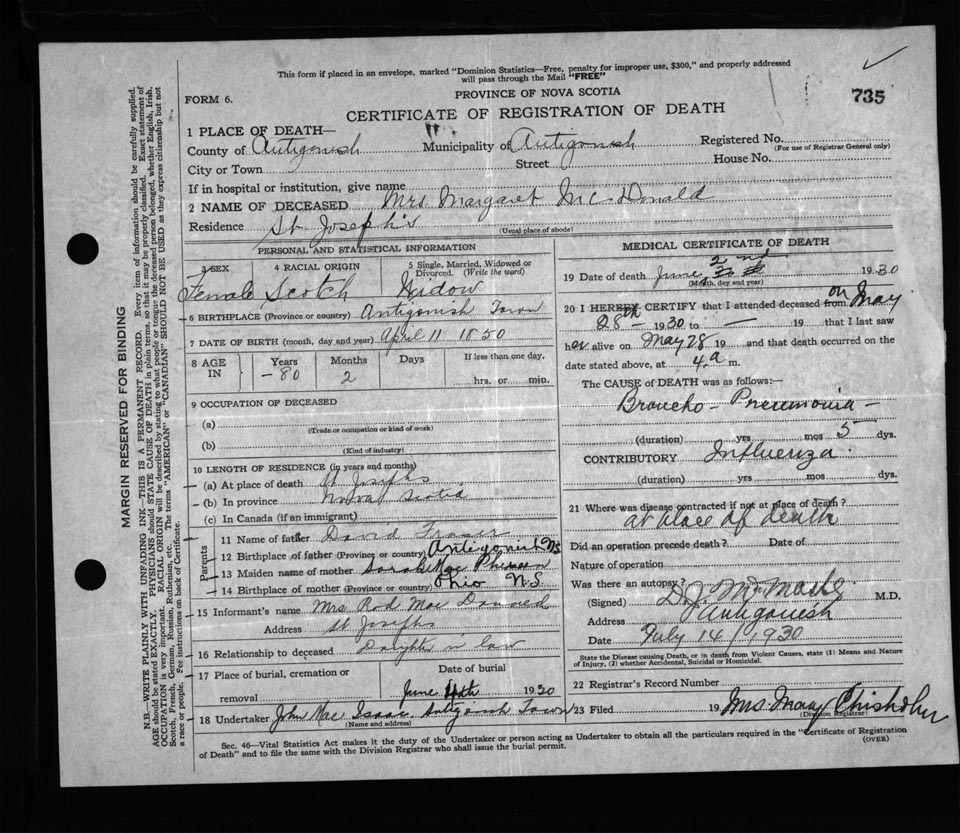 This form if placed in an envelope, marked "Dominion Statistics—Free, penalty for improper use, $300," and properly addressed
will pass through the Mail "FREE"
PROVINCE OF NOVA SCOTIA
735
FORM 6.
CERTIFICATE OF REGISTRATION OF DEATH
1 PLACE OF DEATH—
County of Antigonish Municipality of Antigonish Registered No.
(For use of Registrar General only)
City or Town Street House No.
If in hospital or institution, give name
2 NAME OF DECEASED Mrs. Margaret McDonald
Residence St Joseph's
(Usual place of abode)
PERSONAL AND STATISTICAL INFORMATION
3 SEX 4 RACIAL ORIGIN 5 Single, Married, Widowed or Divorced. (Write the word)
Female Scotch Widow
6 BIRTHPLACE (Province or country) Antigonish Town
7 DATE OF BIRTH (month, day and year) April 11 1850
8 AGE IN Years Months Days If less than one day,
80 2 hrs. or min.
9 OCCUPATION OF DECEASED
(a)
(Trade or occupation or kind of work)
(b)
(Kind of industry)
10 LENGTH OF RESIDENCE (in years and months)
(a) At place of death St Josephs
(b) In province Nova Scotia
(c) In Canada (if an immigrant)
Parents
11 Name of father David Fraser
12 Birthplace of father (Province or country) Antigonish NS
13 Maiden name of mother Sarah Mac Pherson
14 Birthplace of mother (Province or country) Ohio N.S.
15 Informant's name Mrs. Rod Mac Donald
Address St Josephs
16 Relationship to deceased Daughter in law
17 Place of burial, cremation or Date of burial
removal June 4th 1930
18 Undertaker John Mac Isaac Antigonish Town
(Name and address)
MEDICAL CERTIFICATE OF DEATH
19 Date of death June 2nd 1930
(Month, day and year)
20 I HEREBY CERTIFY that I attended deceased from on May
28th — 1930 to — 19 that I last saw
her alive on May 28 19 and that death occurred on the
date stated above, at 4 a m.
The CAUSE of DEATH was as follows:—
Broncho - Pneumonia -
(duration) yrs mos 5 dys.
CONTRIBUTORY Influenza
(duration) yrs mos dys.
21 Where was disease contracted if not at place of death?
at place of death
Did an operation precede death? Date of
Nature of operation
Was there an autopsy?
(Signed) M.D.
Address Antigonish
Date July 14/1930
State the Disease causing Death, or in death from Violent Causes, state (1) Means and Nature
of Injury, (2) whether Accidental, Suicidal or Homicidal.
22 Registrar's Record Number
23 Filed 19 Mrs. Mary Chisholm
(Division Registrar)
Sec. 46—Vital Statistics Act makes it the duty of the Undertaker or person acting as Undertaker to obtain all the particulars required in the "Certificate of Registration
of Death" and to file the same with the Division Registrar who shall issue the burial permit. (OVER)
MARGIN RESERVED FOR BINDING
N.B.—WRITE PLAINLY WITH UNFADING INK—THIS IS A PERMANENT RECORD. Every item of information should be carefully supplied.
AGE should be stated EXACTLY. PHYSICIANS should STATE CAUSE OF DEATH in plain terms, so that it may be properly classified. Exact statement of
OCCUPATION is very important. RACIAL ORIGIN will be described by stating to what people or tongue the deceased person belonged, whether English, Irish,
Scotch, French, German, Russian, Ruthenian, etc. The terms "AMERICAN" or "CANADIAN" SHOULD NOT BE USED as they express citizenship but not
a race or people. See instructions on back of Certificate.